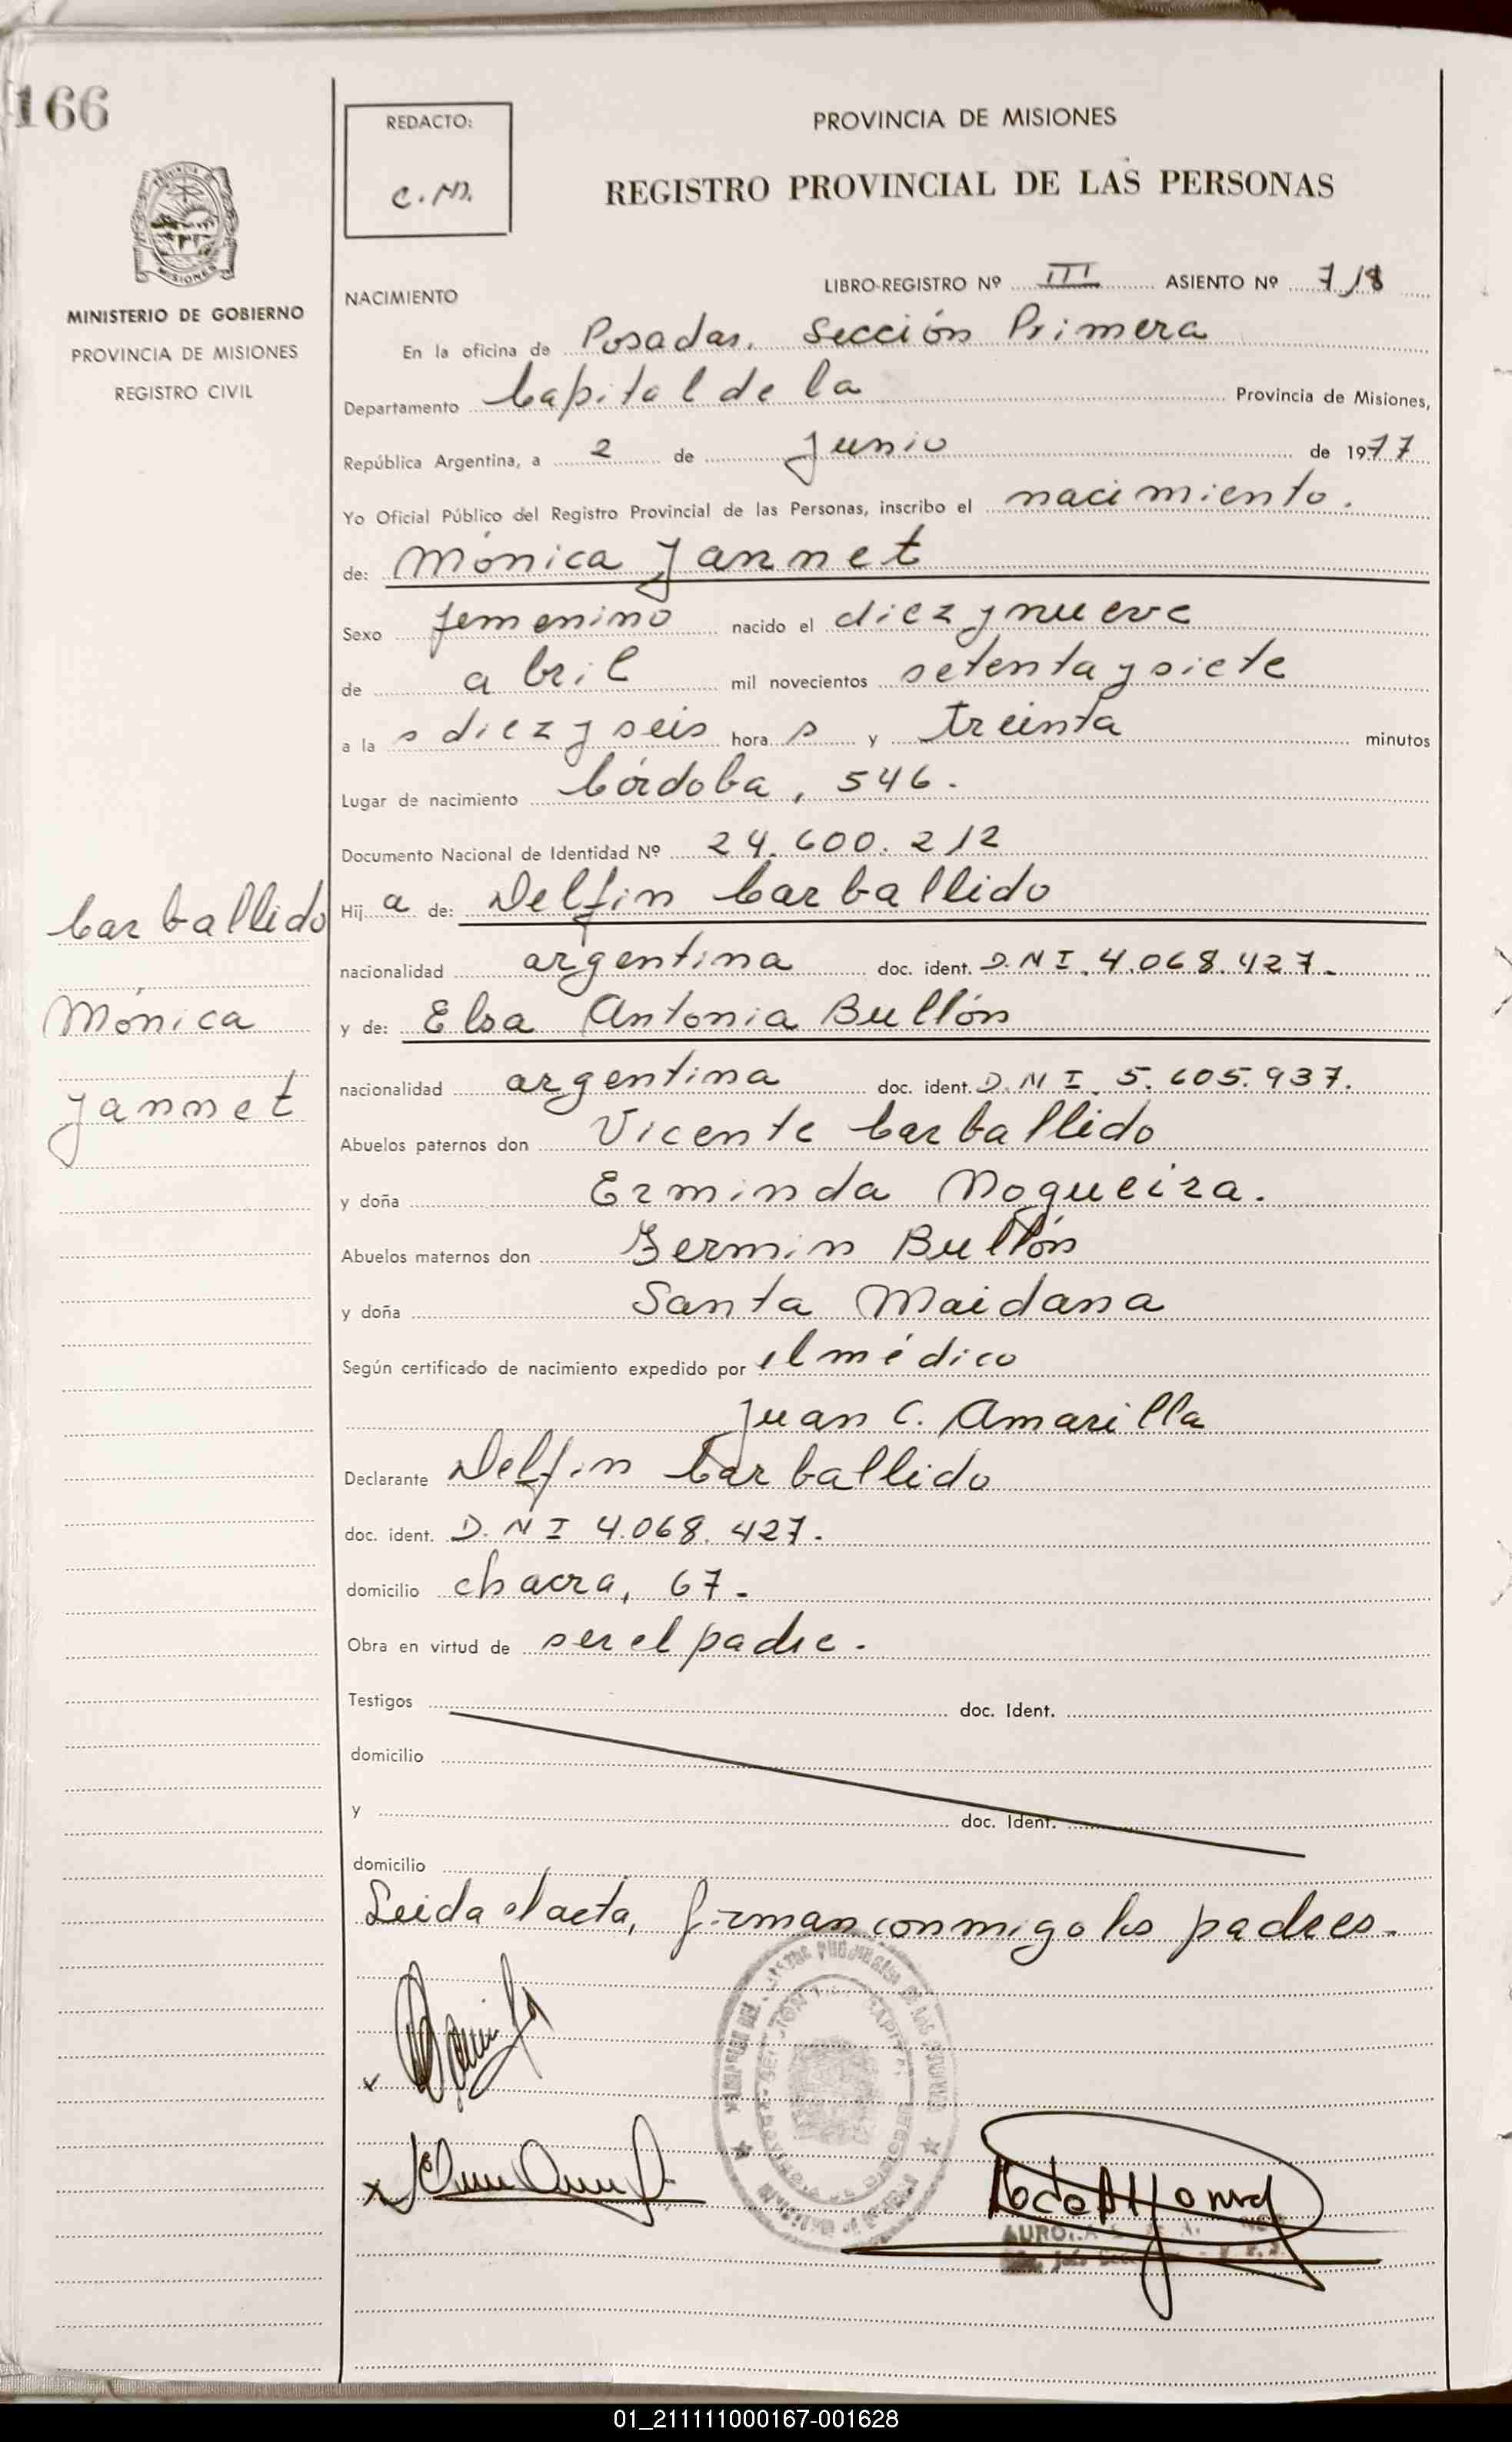 166
REDACTO:
C.M.
PROVINCIA DE MISIONES
REGISTRO PROVINCIAL DE LAS PERSONAS
MISIONES
MINISTERIO DE GOBIERNO
PROVINCIA DE MISIONES
REGISTRO CIVIL
NACIMIENTO
LIBRO-REGISTRO Nº III ASIENTO Nº 718
En la oficina de Posadas. Sección Primera
Departamento Capital de la Provincia de Misiones,
República Argentina, a 2 de Junio de 1977
Yo Oficial Público del Registro Provincial de las Personas, inscribo el nacimiento.
de: Mónica Jannet
Sexo femenino nacido el diez y nueve
de abril mil novecientos setenta y siete
a la s diez y seis hora s y treinta minutos
Lugar de nacimiento Córdoba, 546.
Documento Nacional de Identidad Nº 24.600.212
Hij a de: Delfin Carballido
nacionalidad argentina doc. ident. D.N I. 4.068.427.
y de: Elsa Antonia Bullón
nacionalidad argentina doc. ident. D.N I 5.605.937.
Abuelos paternos don Vicente Carballido
y doña Erminda Nogueira.
Abuelos maternos don Fermin Bullón
y doña Santa Maidana
Según certificado de nacimiento expedido por el médico
Juan C. Amarilla
Declarante Delfin Carballido
doc. ident. D.N I 4.068.427.
domicilio chacra, 67.
Obra en virtud de ser el padre.
Testigos doc. Ident.
domicilio
y doc. Ident.
domicilio
Leida el acta, firman conmigo los padres.
Carballido
Mónica
Jannet
01_211111000167-001628